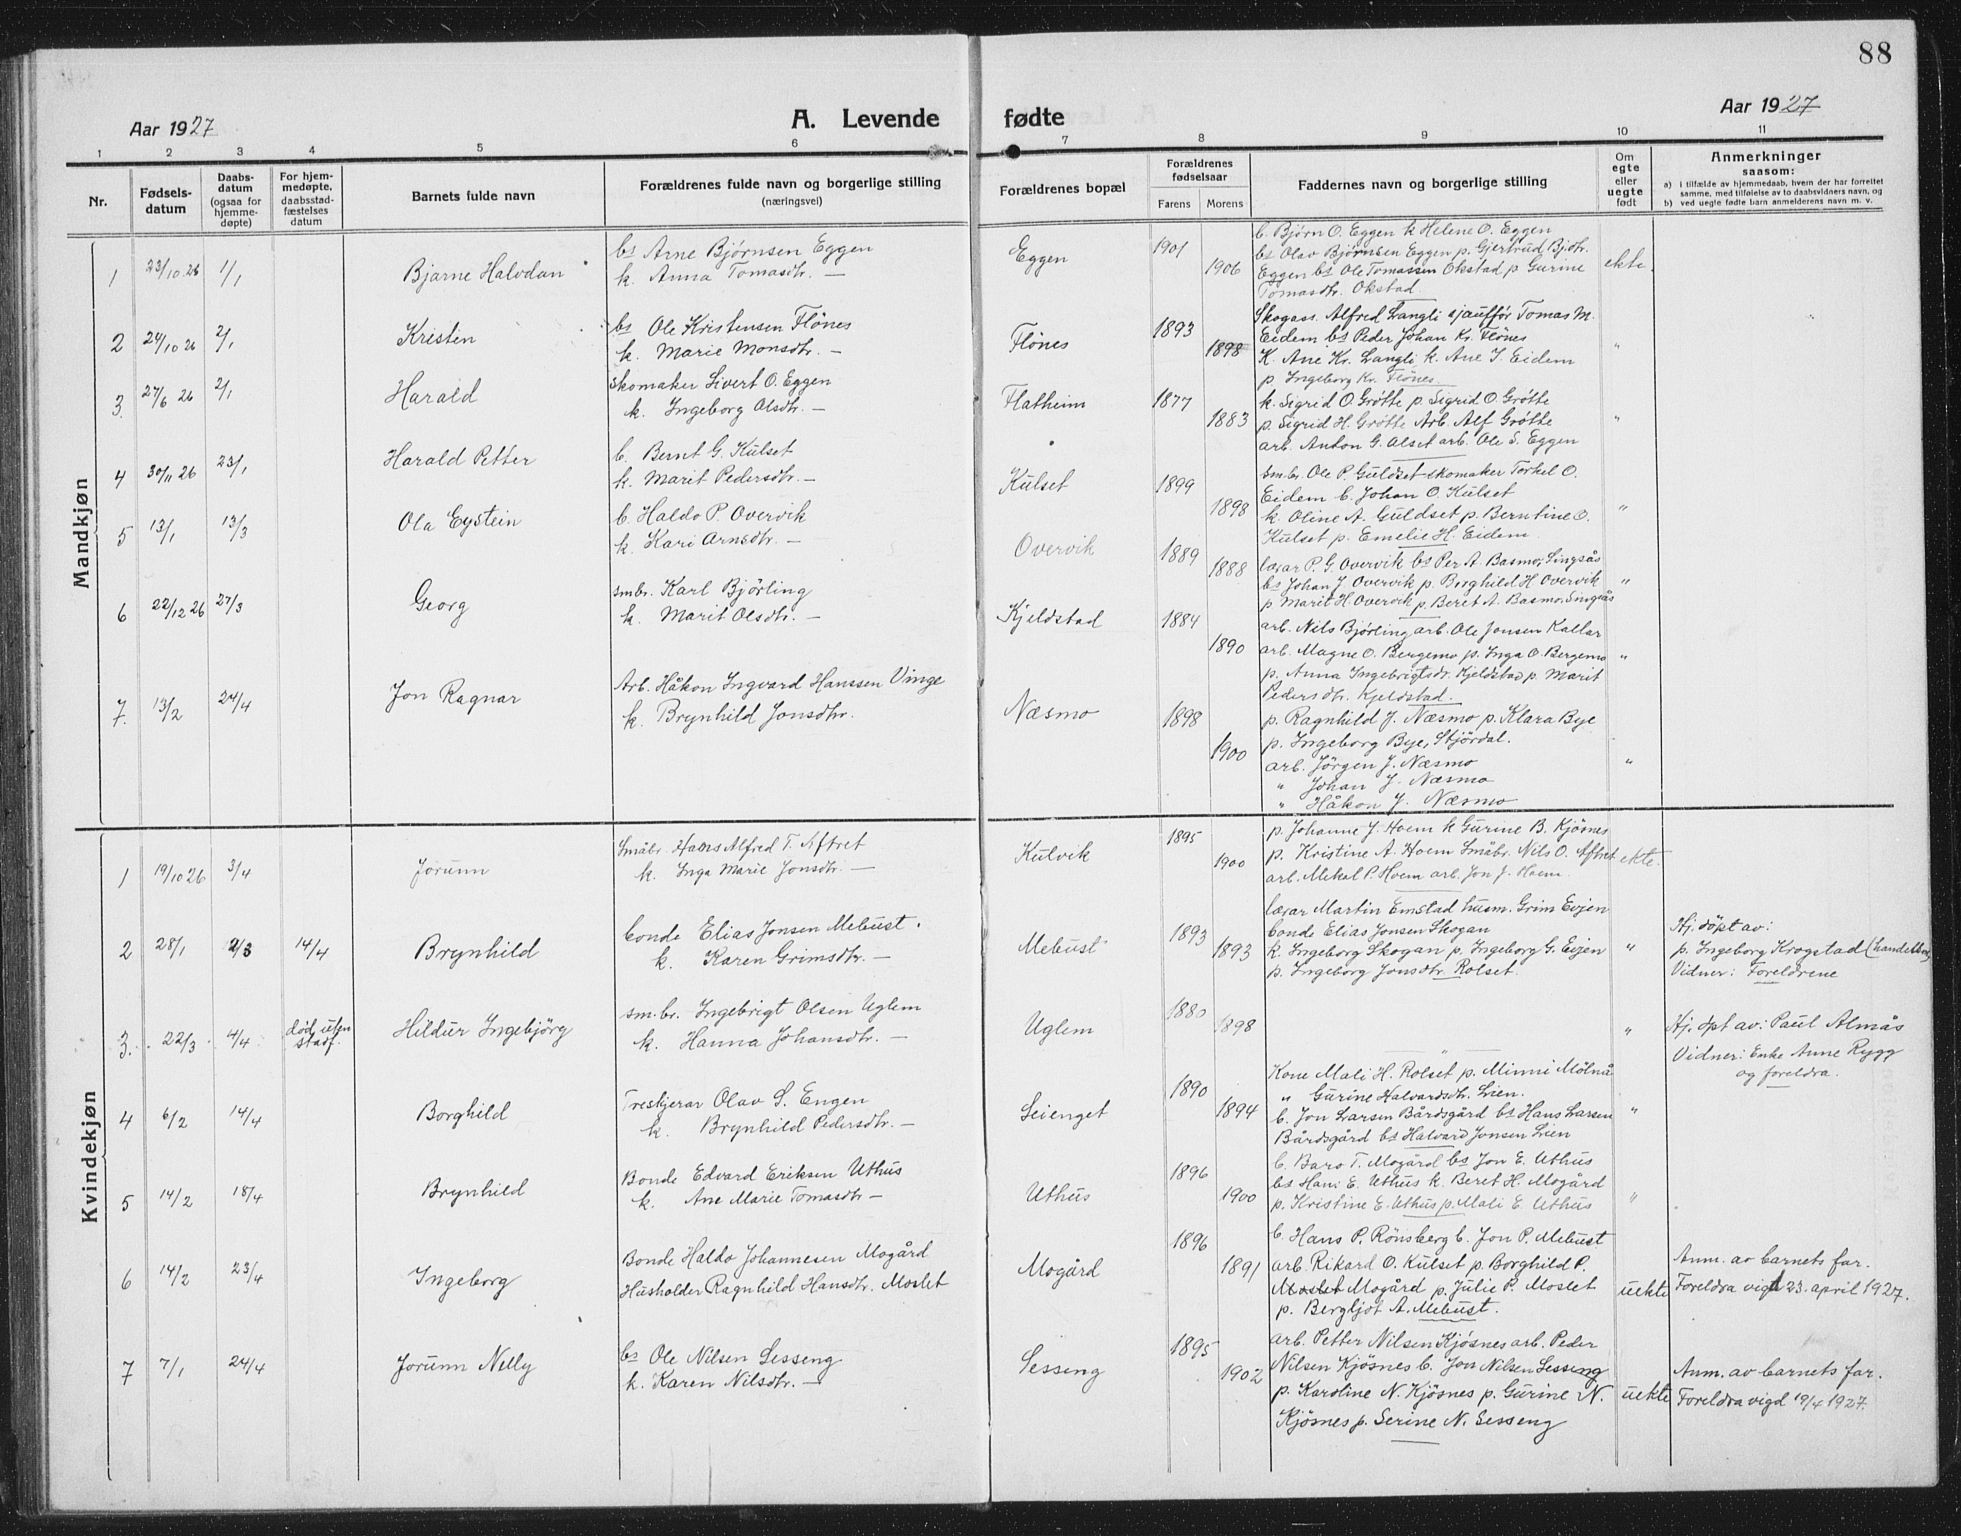 88
Aar 1927
A. Levende fødte
Aar 1927
1 2 3 4 5 6 7 8 9 10 11
Nr.
Fødsels-
datum
Daabs-
datum
(ogsaa for
hjemme-
døpte)
For hjem-
medøpte,
daabsstad-
fæstelses
datum
Barnets fulde navn
Forældrenes fulde navn og borgerlige stilling
(næringsvei)
Forældrenes bopæl
Forældrenes
fødselsaar
Farens Morens
Faddernes navn og borgerlige stilling
Om
egte
eller
uegte
født
Anmerkninger
saasom:
a) i tilfælde av hjemmedaab, hvem der har forrettet
samme, med tilføielse av to daabsvidners navn, og
b) ved uegte fødte barn anmelderens navn m. v.
Mandkjøn
1 23/10 26 1/1 Bjarne Halvdan
bs Arne Bjørnsen Eggen
k. Anna Tomasdtr. —
Eggen 1901 1906
b. Bjørn O. Eggen k Helene O. Eggen
bs Olav Bjørnsen Eggen p. Gjertrud Bjdtr.
Eggen bs Ole Tomassen Okstad p Gurine
Tomasdtr. Okstad
ekte.
2 24/10 26 2/1 Kristen
bs Ole Kristensen Flönes
k. Marie Monsdtr. —
Flönes 1893 1898
Skogass. Alfred Langli sjauffør Tomas M.
Eidem bs Peder Johan Kr. Flönes
K. Ane Kr. Langli k. Ane J. Eidem
p. Ingeborg Kr. Flönes.
"
3. 27/6 26 2/1 Harald
Skomaker Sivert O. Eggen
k. Ingeborg Olsdtr. —
Flatheim 1877 1883
k. Sigrid O. Grötte p. Sigrid O. Grötte
p. Sigrid H. Grötte Arb. Alf Grötte
arb. Anton G. Alset arb. Ole S. Eggen
"
4 30/11 26 23/1 Harald Petter
b. Bernt G. Kulset
k. Marit Pedersdtr. —
Kulset 1899 1898
Smbr. Ole P. Guldset skomaker Torkel O.
Eidem b. Johan O. Kulset
k. Oline A. Guldset p. Berntine O.
Kulset p. Emelie H. Eidem
"
5 13/1 13/3 Ola Eystein
b. Haldo P. Overvik
k. Kari Arnsdtr. —
Overvik 1889 1888
lærar P. G. Overvik bs Per A. Basmo, Singsås
bs Johan J. Overvik p. Borghild H Overvik
p Marit H. Overvik p. Beret A. Basmo, Singsås
"
6 22/12 26 27/3 Georg
smbr. Karl Bjørling
k. Marit Olsdtr. —
Kjeldstad 1884 1890
arb. Nils Bjørling arb. Ole Jonsen Kallar
arb. Magne O. Bergemo p. Inga O. Bergemo
p. Anna Ingebrigtsdr. Kjeldstad p. Marit
Pedersdtr. Kjeldstad.
"
7. 13/2 24/4 Jon Ragnar
Arb. Håkon Ingvard Hanssen Vinge
k. Brynhild Jonsdtr.
Næsmo 1898 1900
p. Ragnhild J. Næsmo p. Klara Bye
p. Ingeborg Bye, Stjördal.
arb. Jörgen J. Næsmo
" Johan J. Næsmo
" Håkon J. Næsmo
"
Kvindekjøn
1 19/10 26 3/4 Jorunn
Småbr. Hans Alfred T. Aftret
k. Inga Marie Jonsdtr. —
Kulvik 1895 1900
p. Johanne J. Hoem k Gurine B. Kjösnes
p. Kristine A. Hoem Småbr. Nils O. Aftret
arb. Mekal P. Hoem arb. Jon J. Hoem.
ekte.
2 28/1 2/3 14/4 Brynhild
bonde Elias Jonsen Mebust.
k. Karen Grimsdtr. —
Mebust 1893 1893
lærar Martin Emstad husm. Grim Evjen
bonde Elias Jonsen Skogan
k. Ingeborg Skogan p. Ingeborg G. Evjen
p. Ingeborg Jonsdtr. Rolset.
"
Hj. döpt av:
p. Ingeborg Krogstad
Vidner: Foreldrene
3. 22/3 4/4 död uten
stadf. Hildur Ingebjörg
sm.br. Ingebrigt Olsen Uglem
k. Hanna Johansdtr. —
Uglem 1880 1898
"
Hj. dpt av: Paul Almås
Vidner: Enke Anne Rygg
og foreldra.
4 6/2 14/4 Borghild
Treskjerar Olav S. Engen
k. Brynhild Pedersdtr. —
Seienget 1890 1894
Kone Mali H. Rolset p. Minni Mölnå
" Gurine Halvardsdtr. Lien.
b. Jon Larsen Bårdsgård bs Hans Larsen
Bårdsgård bs Halvard Jonsen Lien
"
5 14/2 18/4 Brynhild
Bonde Edvard Eriksen Uthus
k. Ane Marie Tomasdtr —
Uthus 1896 1900
b. Baro T. Mogård bs Jon E. Uthus
bs Hans E. Uthus k. Beret H. Mogård
p. Kristine E. Uthus p. Mali E. Uthus
"
6 14/2 23/4 Ingeborg
Bonde Haldo Johannesen Mogård
Husholder Ragnhild Hansdtr. Moslet
Mogård 1896 1891
b. Hans P. Rönsberg b. Jon P. Mebust
arb. Rikard O. Kulset p. Borghild P.
Moslet Mogård p. Julie P. Moslet
p. Bergljot A. Mebust.
uekte
Anm. av barnets far.
Foreldra vigd 23. april 1927.
7 7/1 24/4 Jorunn Nelly
bs Ole Nilsen Sesseng
k. Karen Nilsdtr. —
Sesseng 1895 1902
arb. Petter Nilsen Kjösnes arb. Peder
Nilsen Kjösnes b. Jon Nilsen Sesseng
p. Karoline N. Kjösnes p. Gurine N.
Kjösnes p. Serine N. Sesseng
uekte
Anm. av barnets far.
Foreldra vigd 19/4 1927.